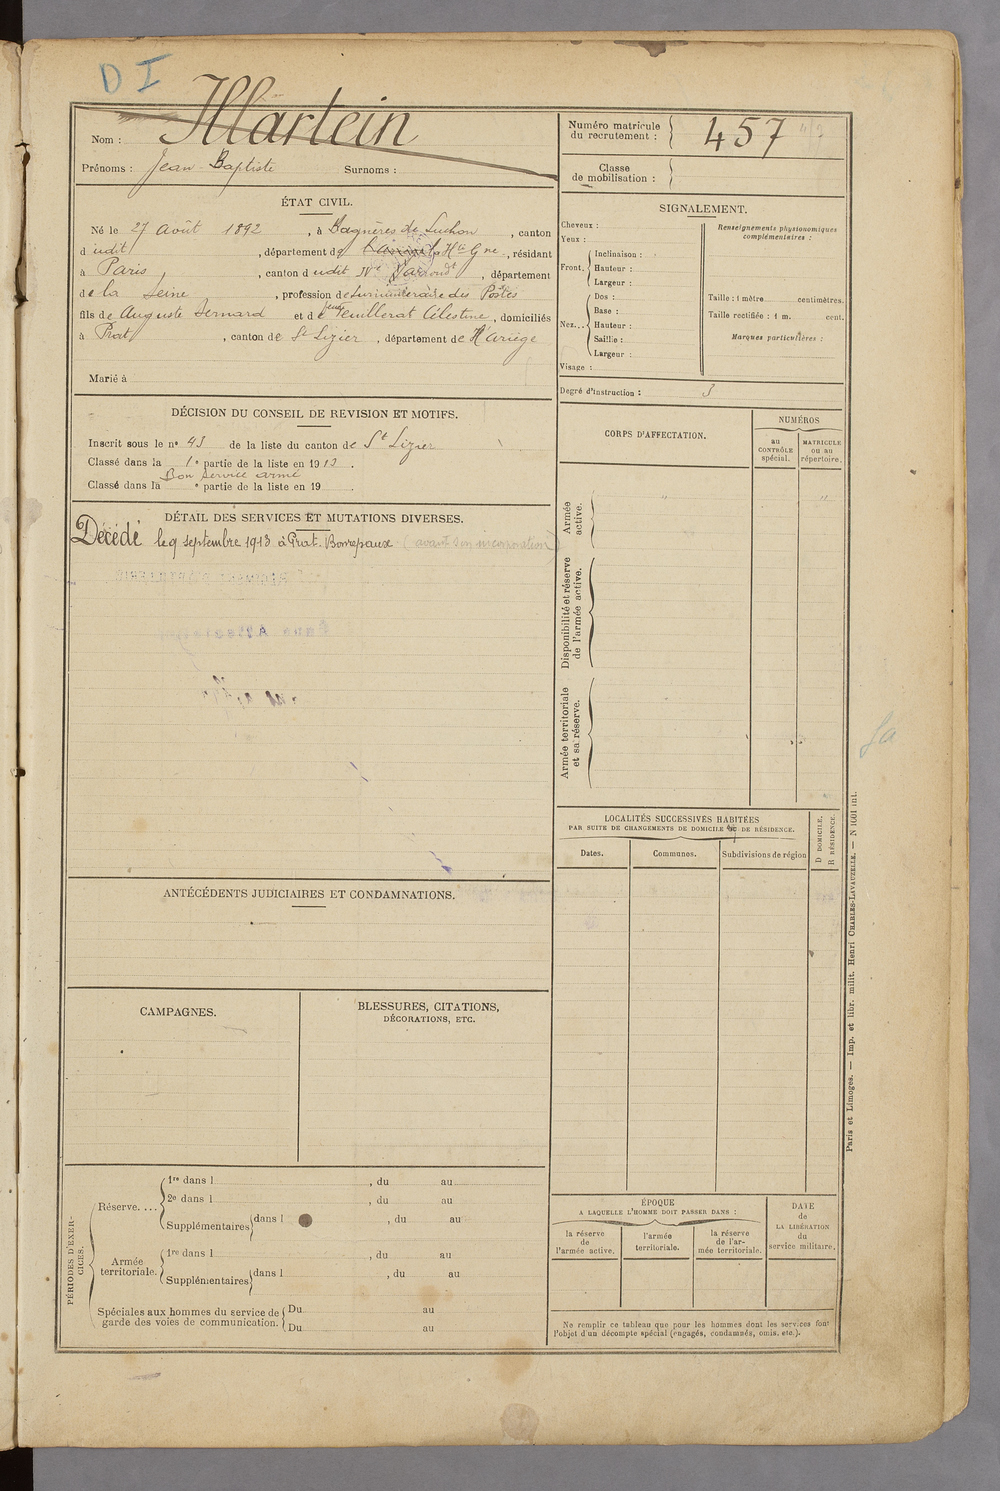 D I
Nom : Martein
Prénoms : Jean Baptiste Surnoms :
Numéro matricule du recrutement : 457
Classe de mobilisation :
ÉTAT CIVIL.
Né le 27 Août 1892, à Bagnères de Luchon, canton
d udit, département de la Hte Gne, résidant
à Paris, canton d udit, département
de la Seine, profession de surnuméraire des Postes
fils de Auguste Bernard et de feue Feuillerat Célestine, domiciliés
à Prat, canton de St Lizier, département de l'Ariège
Marié à
SIGNALEMENT.
Cheveux :
Yeux :
Front. Inclinaison :
Hauteur :
Largeur :
Nez... Dos :
Base :
Hauteur :
Saillie :
Largeur :
Visage :
Renseignements physionomiques
complémentaires :
Taille : 1 mètre centimètres.
Taille rectifiée : 1 m. cent.
Marques particulières :
Degré d'instruction : 3
DÉCISION DU CONSEIL DE REVISION ET MOTIFS.
Inscrit sous le no 43 de la liste du canton de St Lizier
Classé dans la 1e partie de la liste en 1913.
Bon service armé
Classé dans la e partie de la liste en 19 .
CORPS D'AFFECTATION.
NUMÉROS
au CONTRÔLE spécial.
MATRICULE ou au répertoire.
Armée active.
Disponibilité et réserve de l'armée active.
Armée territoriale et sa réserve.
DÉTAIL DES SERVICES ET MUTATIONS DIVERSES.
Décédé le 9 septembre 1913 à Prat-Bonrepaux (avant son incorporation)
LOCALITÉS SUCCESSIVES HABITÉES
PAR SUITE DE CHANGEMENTS DE DOMICILE OU DE RÉSIDENCE.
Dates.
Communes.
Subdivisions de région
D DOMICILE.
R RÉSIDENCE.
ANTÉCÉDENTS JUDICIAIRES ET CONDAMNATIONS.
CAMPAGNES.
BLESSURES, CITATIONS,
DÉCORATIONS, ETC.
PÉRIODES D'EXERCICES.
Réserve.... 1re dans l , du au
2e dans l , du au
Supplémentaires dans l , du au
Armée territoriale. 1re dans l , du au
Supplémentaires dans l , du au
Spéciales aux hommes du service de garde des voies de communication. Du au
Du au
ÉPOQUE
A LAQUELLE L'HOMME DOIT PASSER DANS :
la réserve de l'armée active.
l'armée territoriale.
la réserve de l'armée territoriale.
DATE de LA LIBÉRATION du service militaire.
Ne remplir ce tableau que pour les hommes dont les services font
l'objet d'un décompte spécial (engagés, condamnés, omis, etc.).
Paris et Limoges. — Imp. et libr. milit. Henri CHARLES-LAVAUZELLE. — N 1601 int.